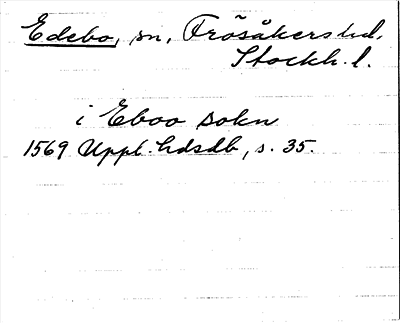 Edebo, sn, Frösåkers hd.
Stockh. l.
i Eboo sokn
1569 Uppl. hdsdb, s. 35.